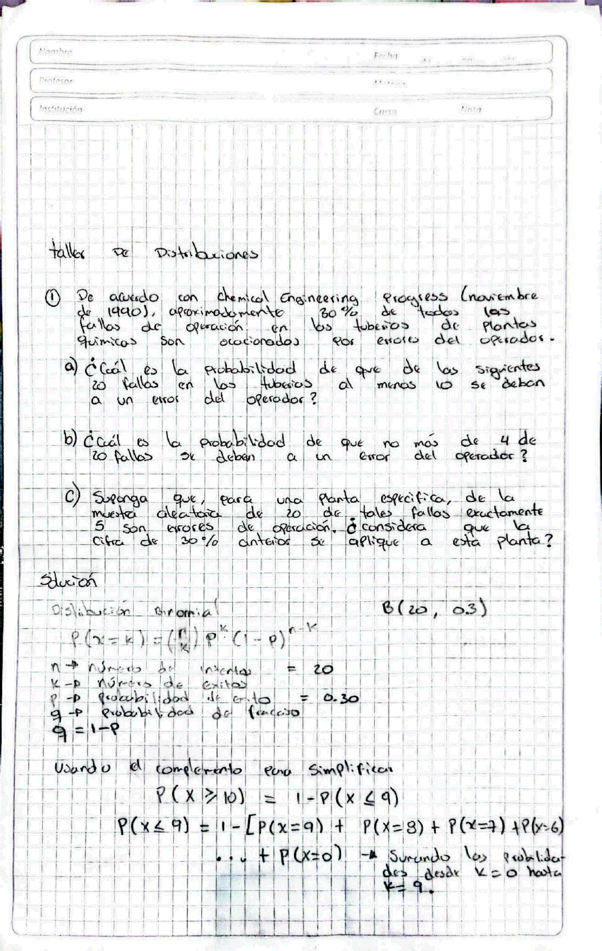 Nombre Fecha
Profesor Materia
Institución Curso Nota
taller De Distribuciones
① De acuerdo con chemical Engineering Progress (noviembre
de 1990), aproximadamente 30% de todas las
fallas de operación en las tuberias de plantas
químicas son ocacionados por errores del operador.
a) ¿Cuál es la probabilidad de que de las siguientes
20 fallas en las tuberias al menos 10 se deban
a un error del operador?
b) ¿Cuál es la probabilidad de que no más de 4 de
20 fallas se deban a un error del operador?
c) Suponga que, para una planta especifica, de la
muestra aleatoria de 20 de tales fallas exactamente
5 son errores de operación. ¿considera que la
cifra de 30% anterior se aplique a esta planta?
Solución
Distribución Binomial B(20, 0.3)
P(x=k) = (n k) p^k (1-p)^n-k
n → número de intentos = 20
k → número de exitos
p → probabilidad de exito = 0.30
q → probabilidad de fracaso
q = 1-p
Usando el complemento para simplificar
P(X ≥ 10) = 1-P(X ≤ 9)
P(X ≤ 9) = 1-[P(x=9) + P(X=8) + P(x=7) + P(x=6)
... + P(X=0) → Sumando las problida-
des desde k=0 hasta
k=9.